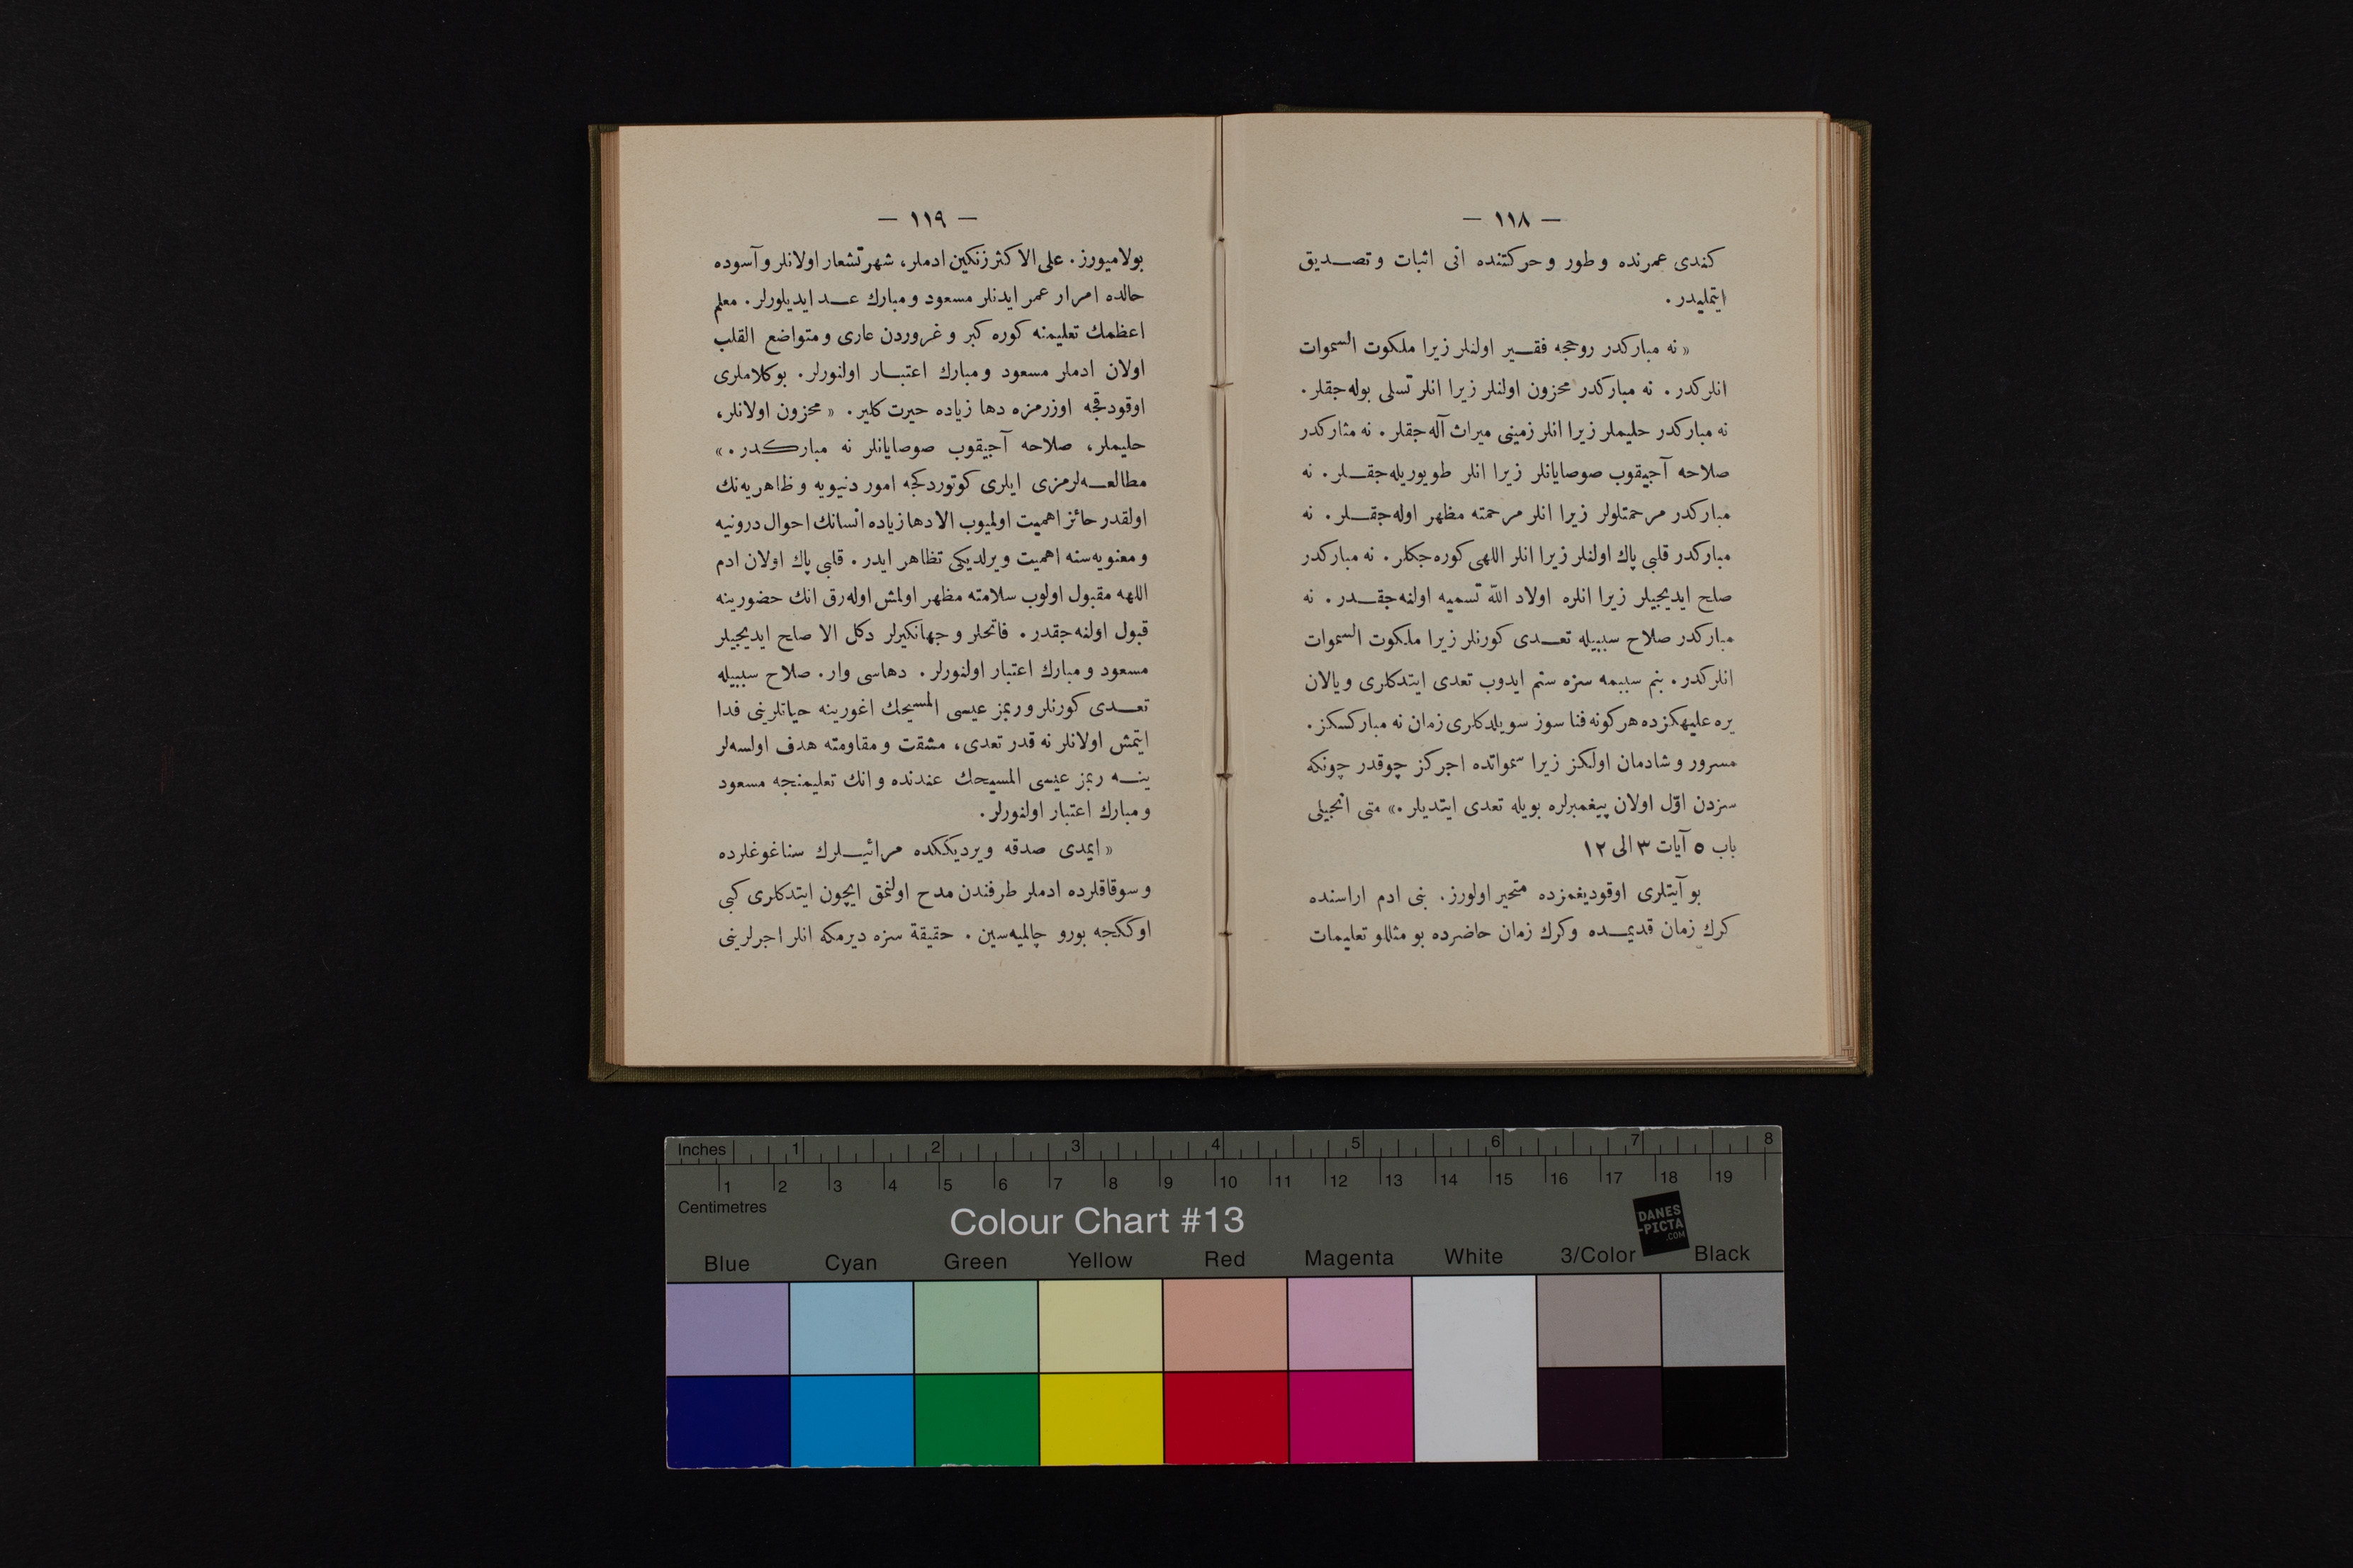 — ١١٨ —
كندى عمرنده وطور وحركتنده انى اثبات وتصديق
ايتمليدر .
« نه مباركدر روحجه فقير اولنلر زيرا ملكوت السموات
انلركدر . نه مباركدر محزون اولنلر زيرا انلر تسلى بوله جقلر .
نه مباركدر حليملر زيرا انلر زمينى ميراث آله جقلر . نه مباركدر
صلاحه آجيقوب صوصايانلر زيرا انلر طويوريله جقلر . نه
مباركدر مرحمتلولر زيرا انلر مرحمته مظهر اوله جقلر . نه
مباركدر قلبى پاك اولنلر زيرا انلر اللهى كوره جكلر . نه مباركدر
صلح ايديجيلر زيرا انلره اولاد الله تسميه اولنه جقدر . نه
مباركدر صلاح سببيله تعدى كورنلر زيرا ملكوت السموات
انلركدر . بنم سببمه سزه ستم ايدوب تعدى ايتدكلرى ويالان
يره عليهكزده هركونه فنا سوز سويلدكلرى زمان نه مباركسكز .
مسرور وشادمان اولكز زيرا سمواتده اجركز چوقدر چونكه
سزدن اوّل اولان پيغمبرلره بويله تعدى ايتديلر .» متى انجيلى
باب ٥ آيات ٣ الى ١٢
بو آيتلرى اوقوديغمزده متحير اولورز . بنى ادم اراسنده
كرك زمان قديمده وكرك زمان حاضرده بو مثللو تعليمات
— ١١٩ —
بولاميورز . على الاكثر زنكين ادملر، شهرتشعار اولانلر وآسوده
حالده امرار عمر ايدنلر مسعود ومبارك عد ايديلورلر . معلم
اعظمك تعليمنه كوره كبر وغروردن عارى ومتواضع القلب
اولان ادملر مسعود ومبارك اعتبار اولنورلر . بوكلاملرى
اوقودقجه اوزرمزه دها زياده حيرت كلير . « محزون اولانلر،
حليملر، صلاحه آجيقوب صوصايانلر نه مباركدر .»
مطالعه لرمزى ايلرى كوتوردكجه امور دنيويه وظاهريه نك
اولقدر حائز اهميت اولميوب الا دها زياده انسانك احوال درونيه
ومعنويه سنه اهميت ويرلديكى تظاهر ايدر . قلبى پاك اولان ادم
اللهه مقبول اولوب سلامته مظهر اولمش اوله رق انك حضورينه
قبول اولنه جقدر . فاتحلر وجهانكيرلر دكل الا صلح ايديجيلر
مسعود ومبارك اعتبار اولنورلر . دهاسى وار . صلاح سببيله
تعدى كورنلر وربمز عيسى المسيحك اغورينه حياتلرينى فدا
ايتمش اولانلر نه قدر تعدى، مشقت ومقاومته هدف اولسه لر
ينه ربمز عيسى المسيحك عندنده وانك تعليمنجه مسعود
ومبارك اعتبار اولنورلر .
« ايمدى صدقه ويرديككده مرائيلرك سناغوغلرده
وسوقاقلرده ادملر طرفندن مدح اولنمق ايچون ايتدكلرى كبى
اوككجه بورو چالميه سين . حقيقة سزه ديرمكه انلر اجرلرينى
Inches 1 2 3 4 5 6 7 8
1 2 3 4 5 6 7 8 9 10 11 12 13 14 15 16 17 18 19
Centimetres
Colour Chart #13
DANES
-PICTA
.COM
Blue Cyan Green Yellow Red Magenta White 3/Color Black